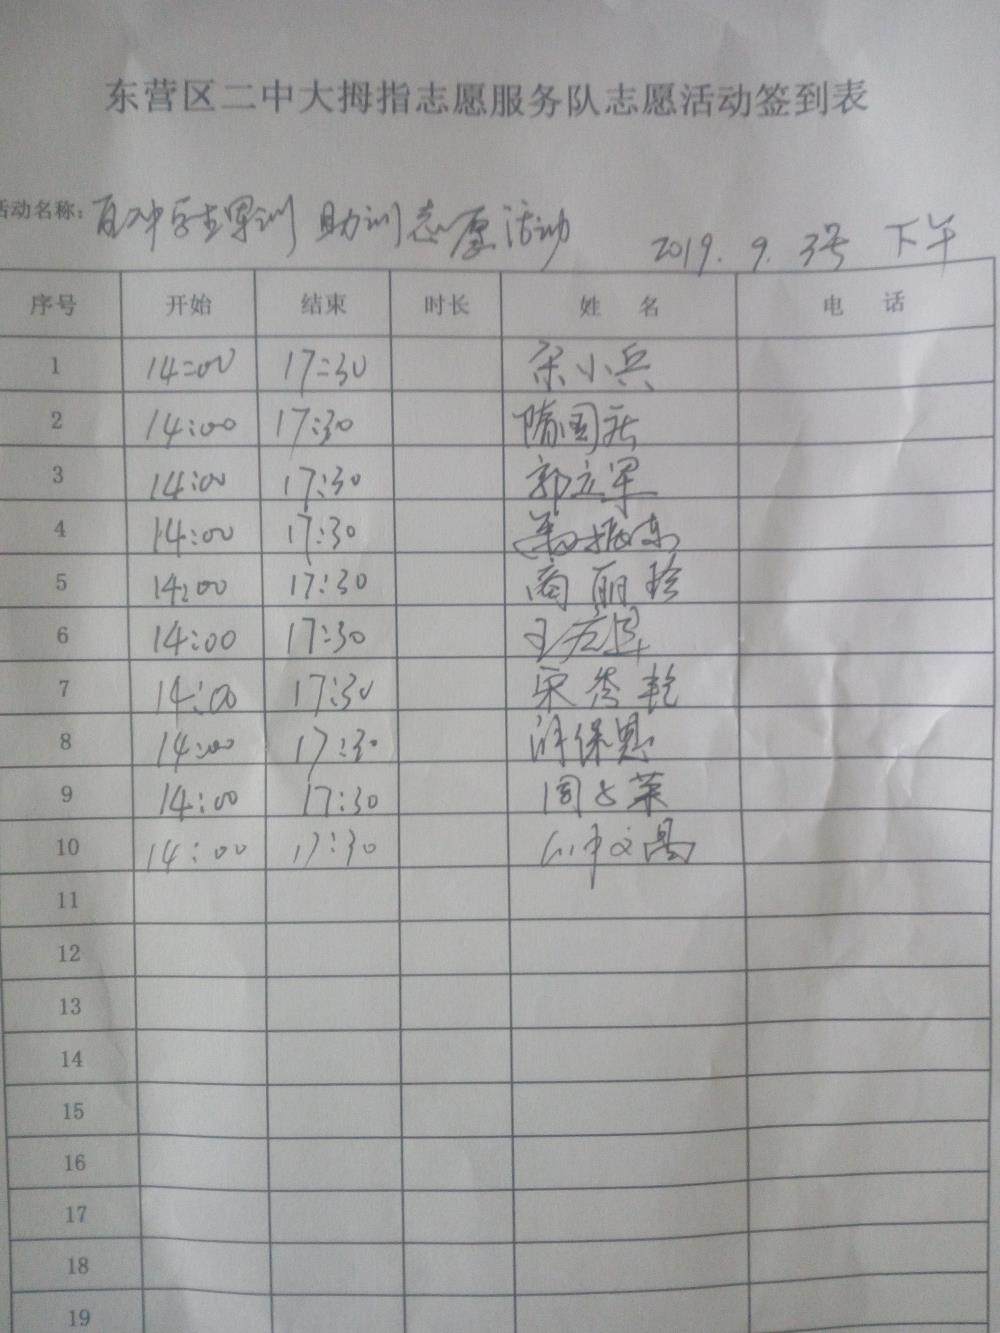 东营区二中大拇指志愿服务队志愿活动签到表
活动名称: 学生军训 助训志愿活动 2019.9.3号 下午
序号 开始 结束 时长 姓名 电话
1 14:00 17:30 小兵
2 14:00 17:30 隋国
3 14:00 17:30 郭立军
4 14:00 17:30 振东
5 14:00 17:30 商丽珍
6 14:00 17:30 王
7 14:00 17:30 宋秀艳
8 14:00 17:30 保恩
9 14:00 17:30 周
10 14:00 17:30 文
11
12
13
14
15
16
17
18
19